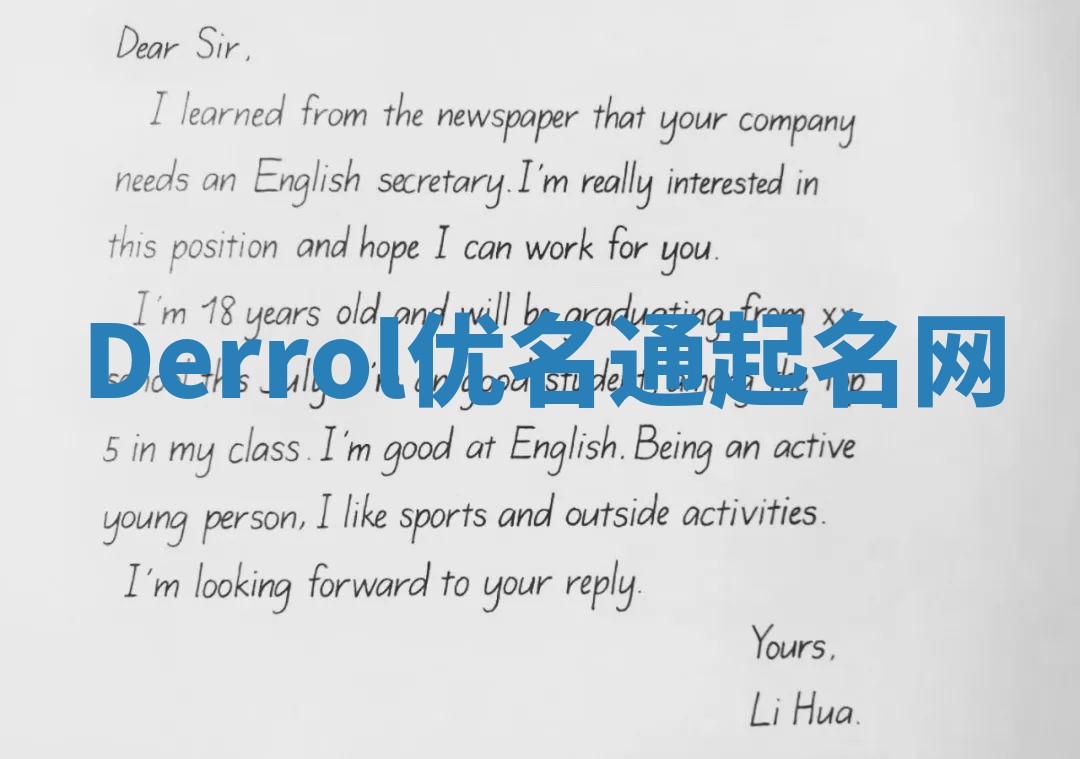 Dear Sir,
I learned from the newspaper that your company
needs an English secretary. I'm really interested in
this position and hope I can work for you.
I'm 18 years old and will be graduating from xx
Derrol优名通起名网
school this July. I'm good student, among the top
5 in my class. I'm good at English. Being an active
young person, I like sports and outside activities.
I'm looking forward to your reply.
Yours,
Li Hua.